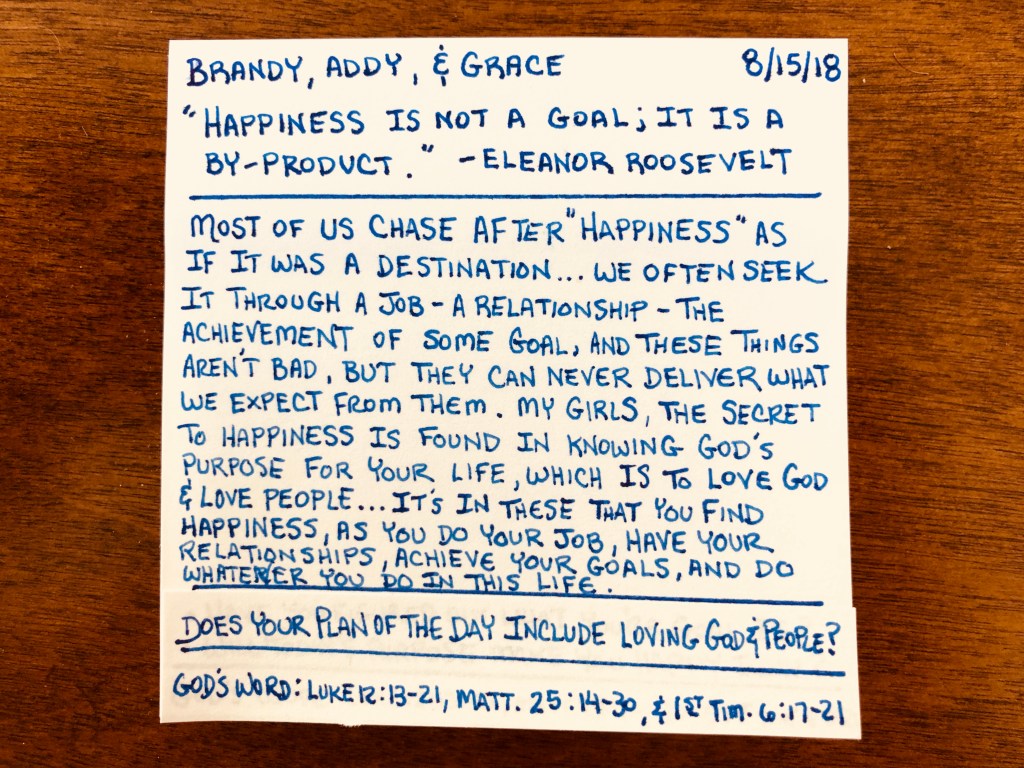 BRANDY, ADDY, & GRACE 8/15/18
"HAPPINESS IS NOT A GOAL; IT IS A
BY-PRODUCT." -ELEANOR ROOSEVELT
MOST OF US CHASE AFTER "HAPPINESS" AS
IF IT WAS A DESTINATION... WE OFTEN SEEK
IT THROUGH A JOB - A RELATIONSHIP - THE
ACHIEVEMENT OF SOME GOAL, AND THESE THINGS
AREN'T BAD, BUT THEY CAN NEVER DELIVER WHAT
WE EXPECT FROM THEM. MY GIRLS, THE SECRET
TO HAPPINESS IS FOUND IN KNOWING GOD'S
PURPOSE FOR YOUR LIFE, WHICH IS TO LOVE GOD
& LOVE PEOPLE... IT'S IN THESE THAT YOU FIND
HAPPINESS, AS YOU DO YOUR JOB, HAVE YOUR
RELATIONSHIPS, ACHIEVE YOUR GOALS, AND DO
WHATEVER YOU DO IN THIS LIFE.
DOES YOUR PLAN OF THE DAY INCLUDE LOVING GOD & PEOPLE?
GOD'S WORD: LUKE 12:13-21, MATT. 25:14-30, & 1ST TIM. 6:17-21